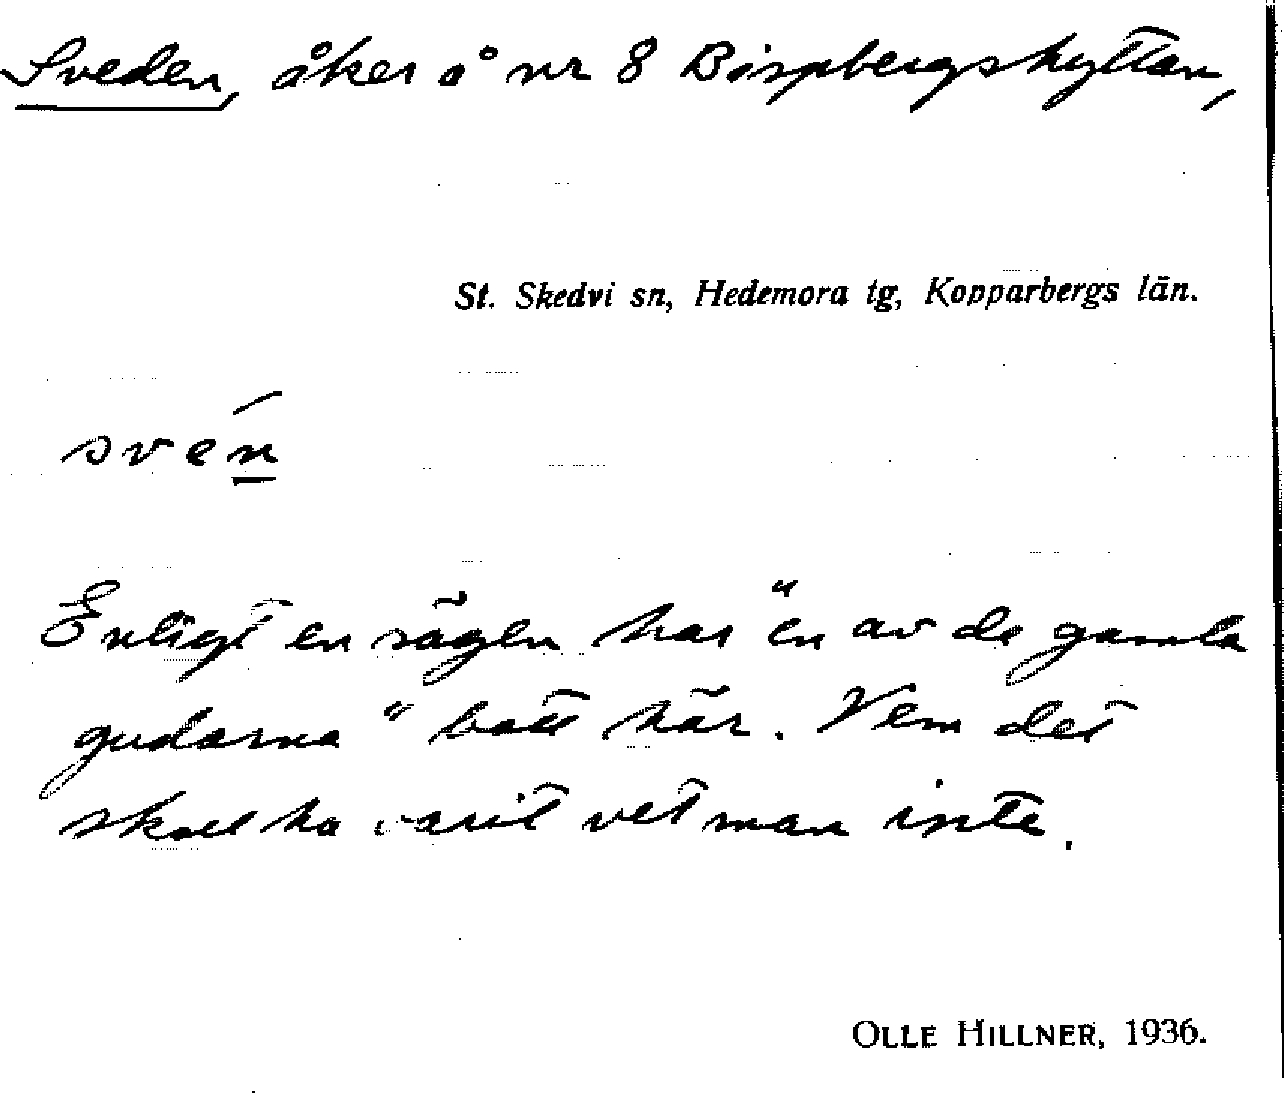 Sveden, åker å nr 8 Bispbergshyttan,
St. Skedvi sn, Hedemora tg, Kopparbergs län.
svén
Enligt en sägen har "en av de gamla
gudarna" bott här. Vem det
skall ha varit vet man inte.
OLLE HILLNER, 1936.